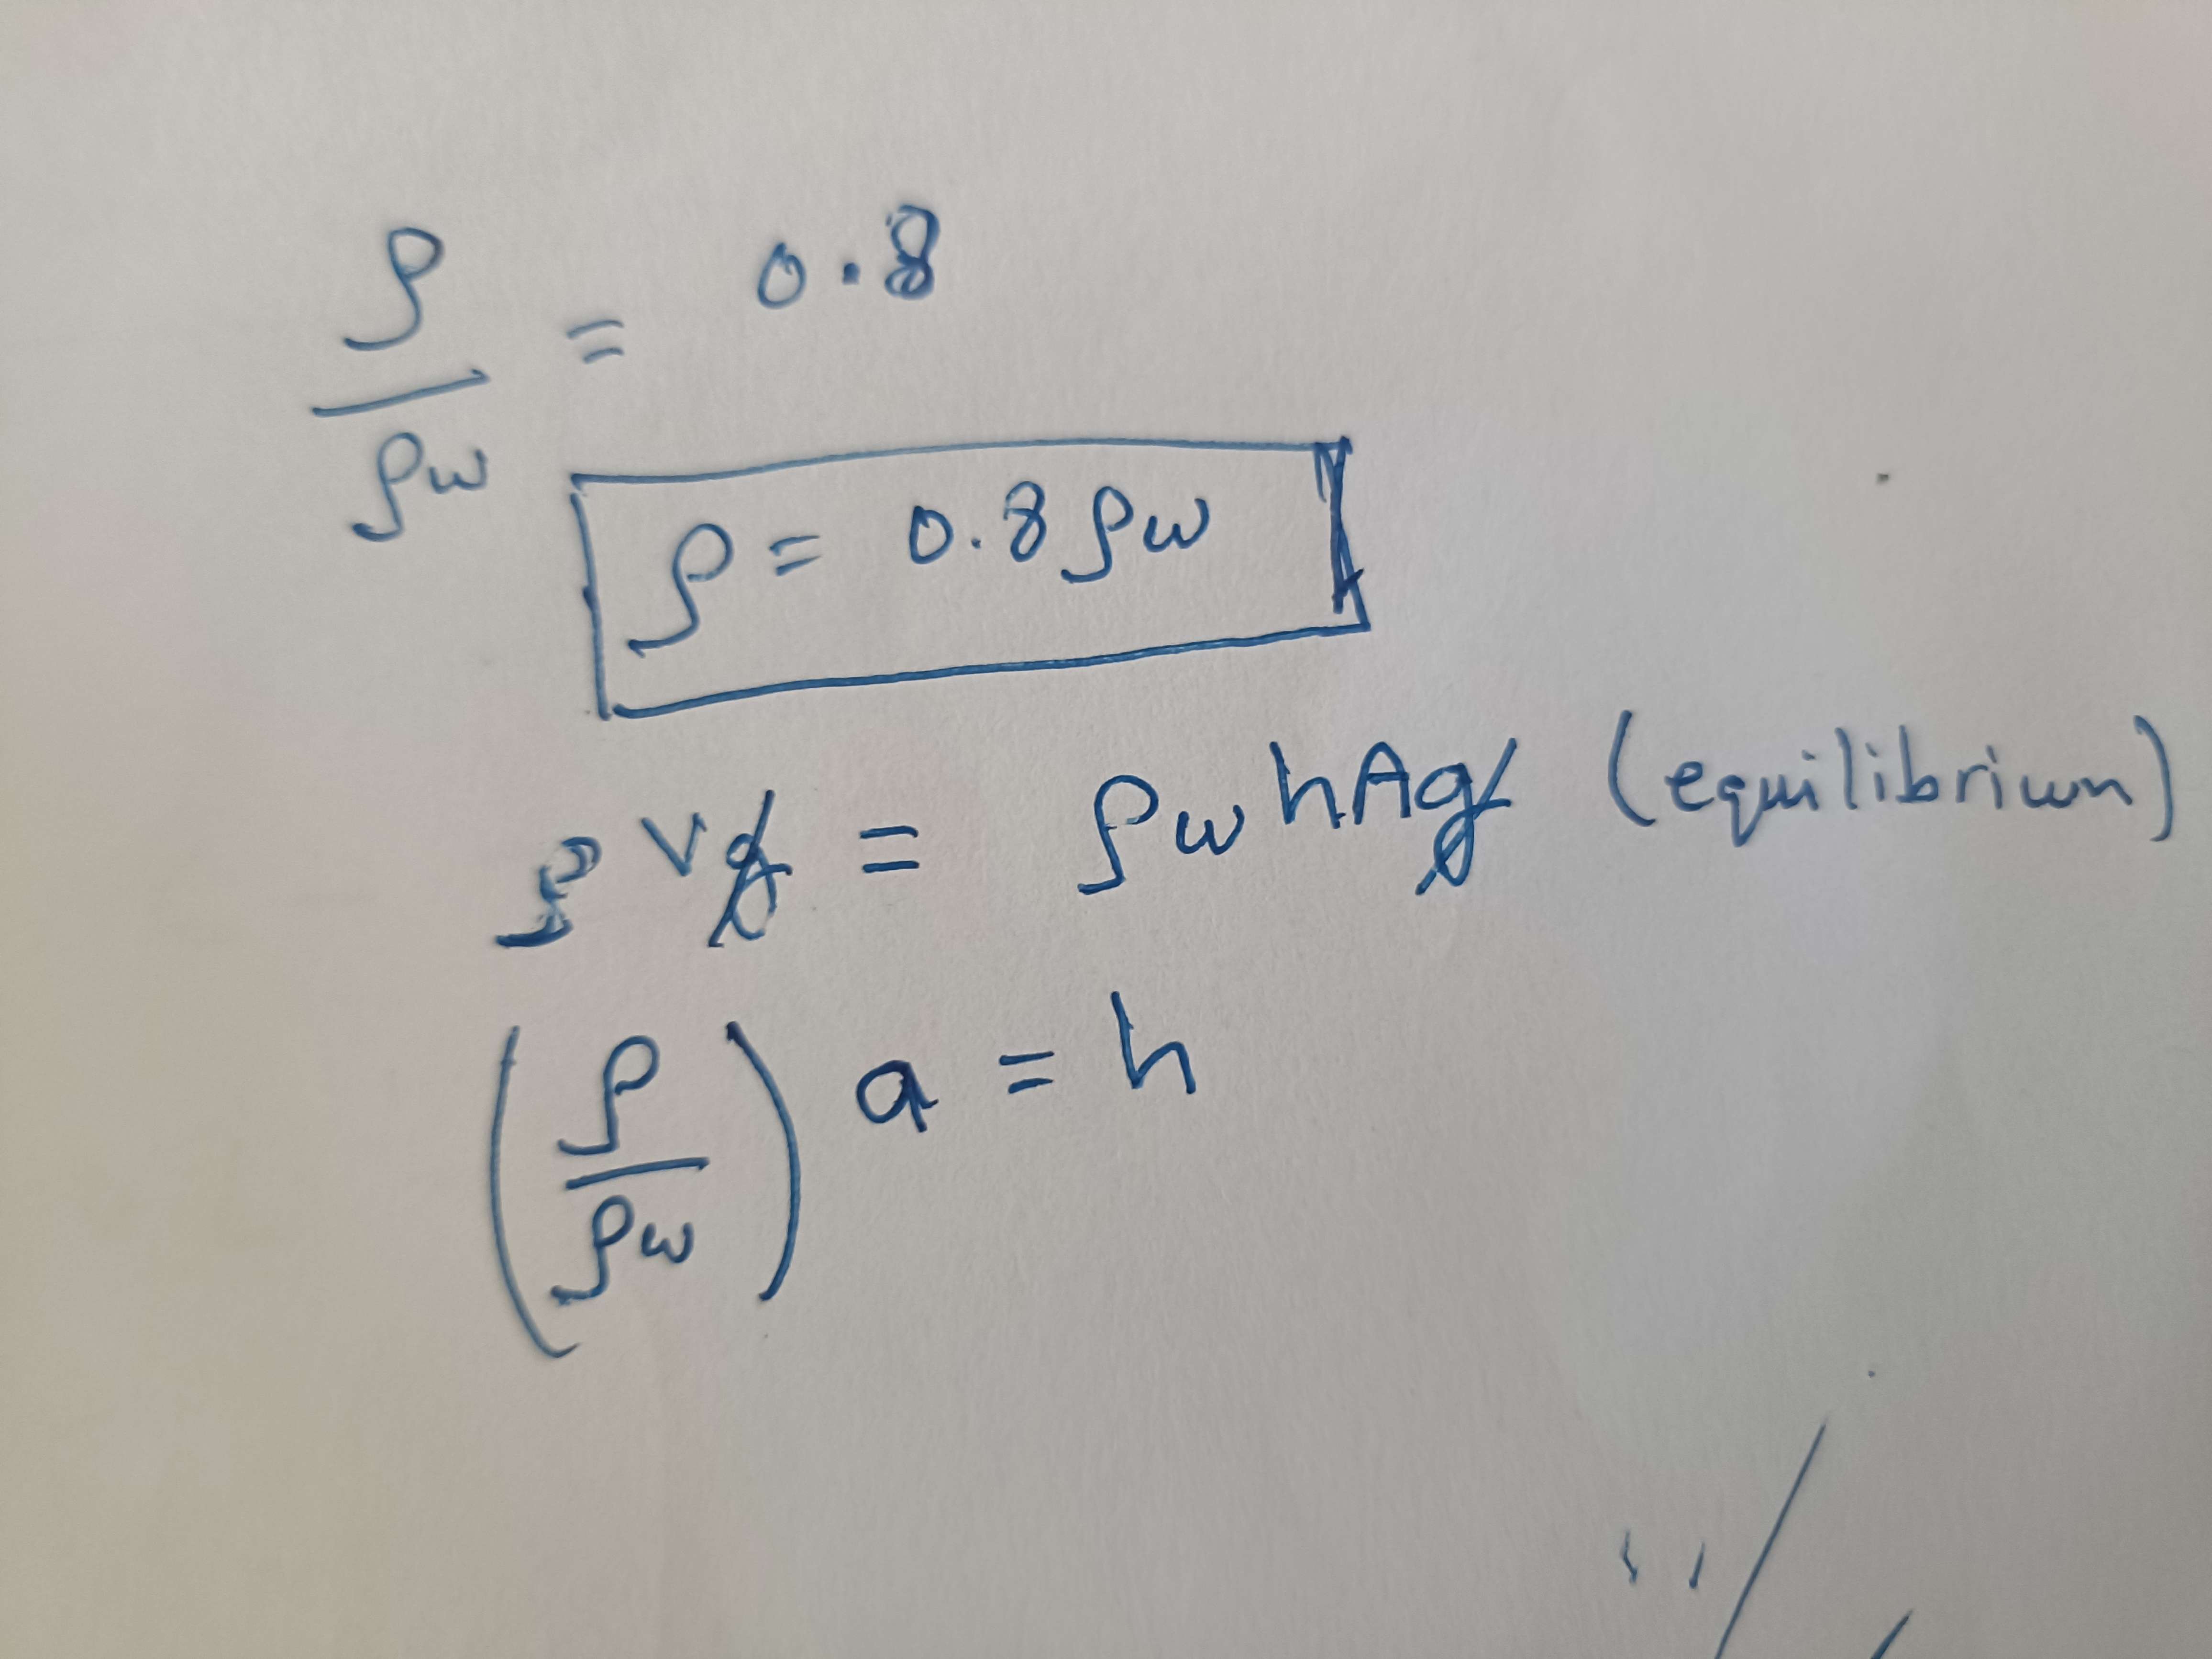 ρ/ρw = 0.8
ρ = 0.8 ρw
ρ V g = ρw h A g (equilibrium)
(ρ/ρw) a = h